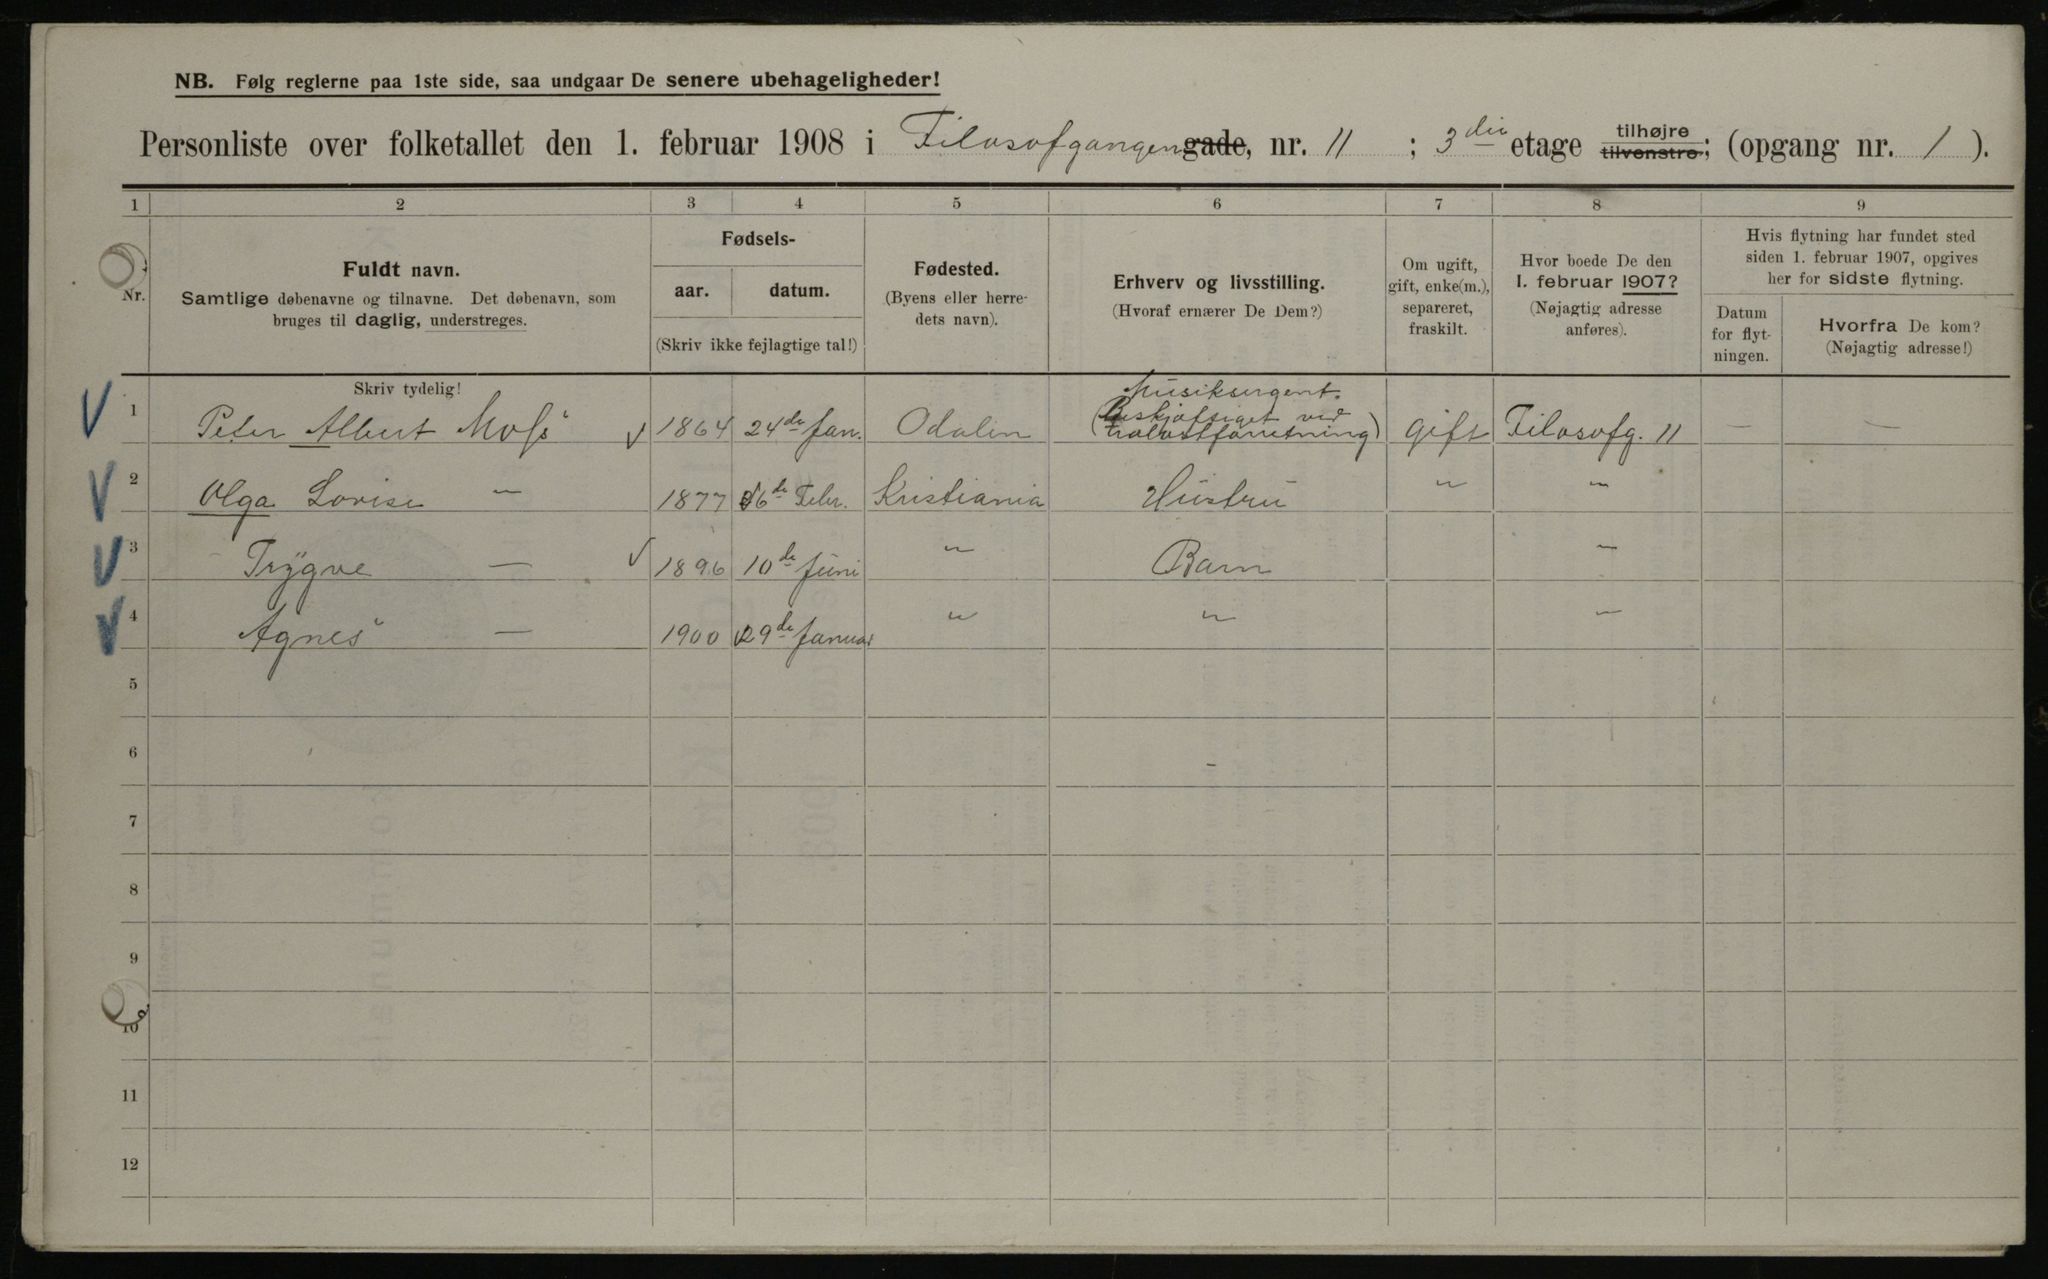 NB. Følg reglerne paa 1ste side, saa undgaar De senere ubehageligheder!
Personliste over folketallet den 1. februar 1908 i Filosofgangen gade, nr. 11 ; 3die etage tilhøjre tilvenstre; (opgang nr. 1 ).
1 2 3 4 5 6 7 8 9
Nr.
Fuldt navn.
Samtlige døbenavne og tilnavne. Det døbenavn, som
bruges til daglig, understreges.
Skriv tydelig!
Fødsels-
aar. datum.
(Skriv ikke fejlagtige tal!)
Fødested.
(Byens eller herre-
dets navn).
Erhverv og livsstilling.
(Hvoraf ernærer De Dem?)
Om ugift,
gift, enke(m.),
separeret,
fraskilt.
Hvor boede De den
1. februar 1907?
(Nøjagtig adresse
anføres).
Hvis flytning har fundet sted
siden 1. februar 1907, opgives
her for sidste flytning.
Datum
for flyt-
ningen.
Hvorfra De kom?
(Nøjagtig adresse!)
Musiksergent.
(Beskjæftiget ved
1 Peter Albert Moss 1864 24de Jan. Odalen gift Filosofg. 11 — —
2 Olga Lovise " 1877 6de Febr. Kristiania Hustru " "
3 Trygve — 1896 10de Juni " Barn "
4 Agnes — 1900 29de Januar " " "
5
6
7
8
9
10
11
12